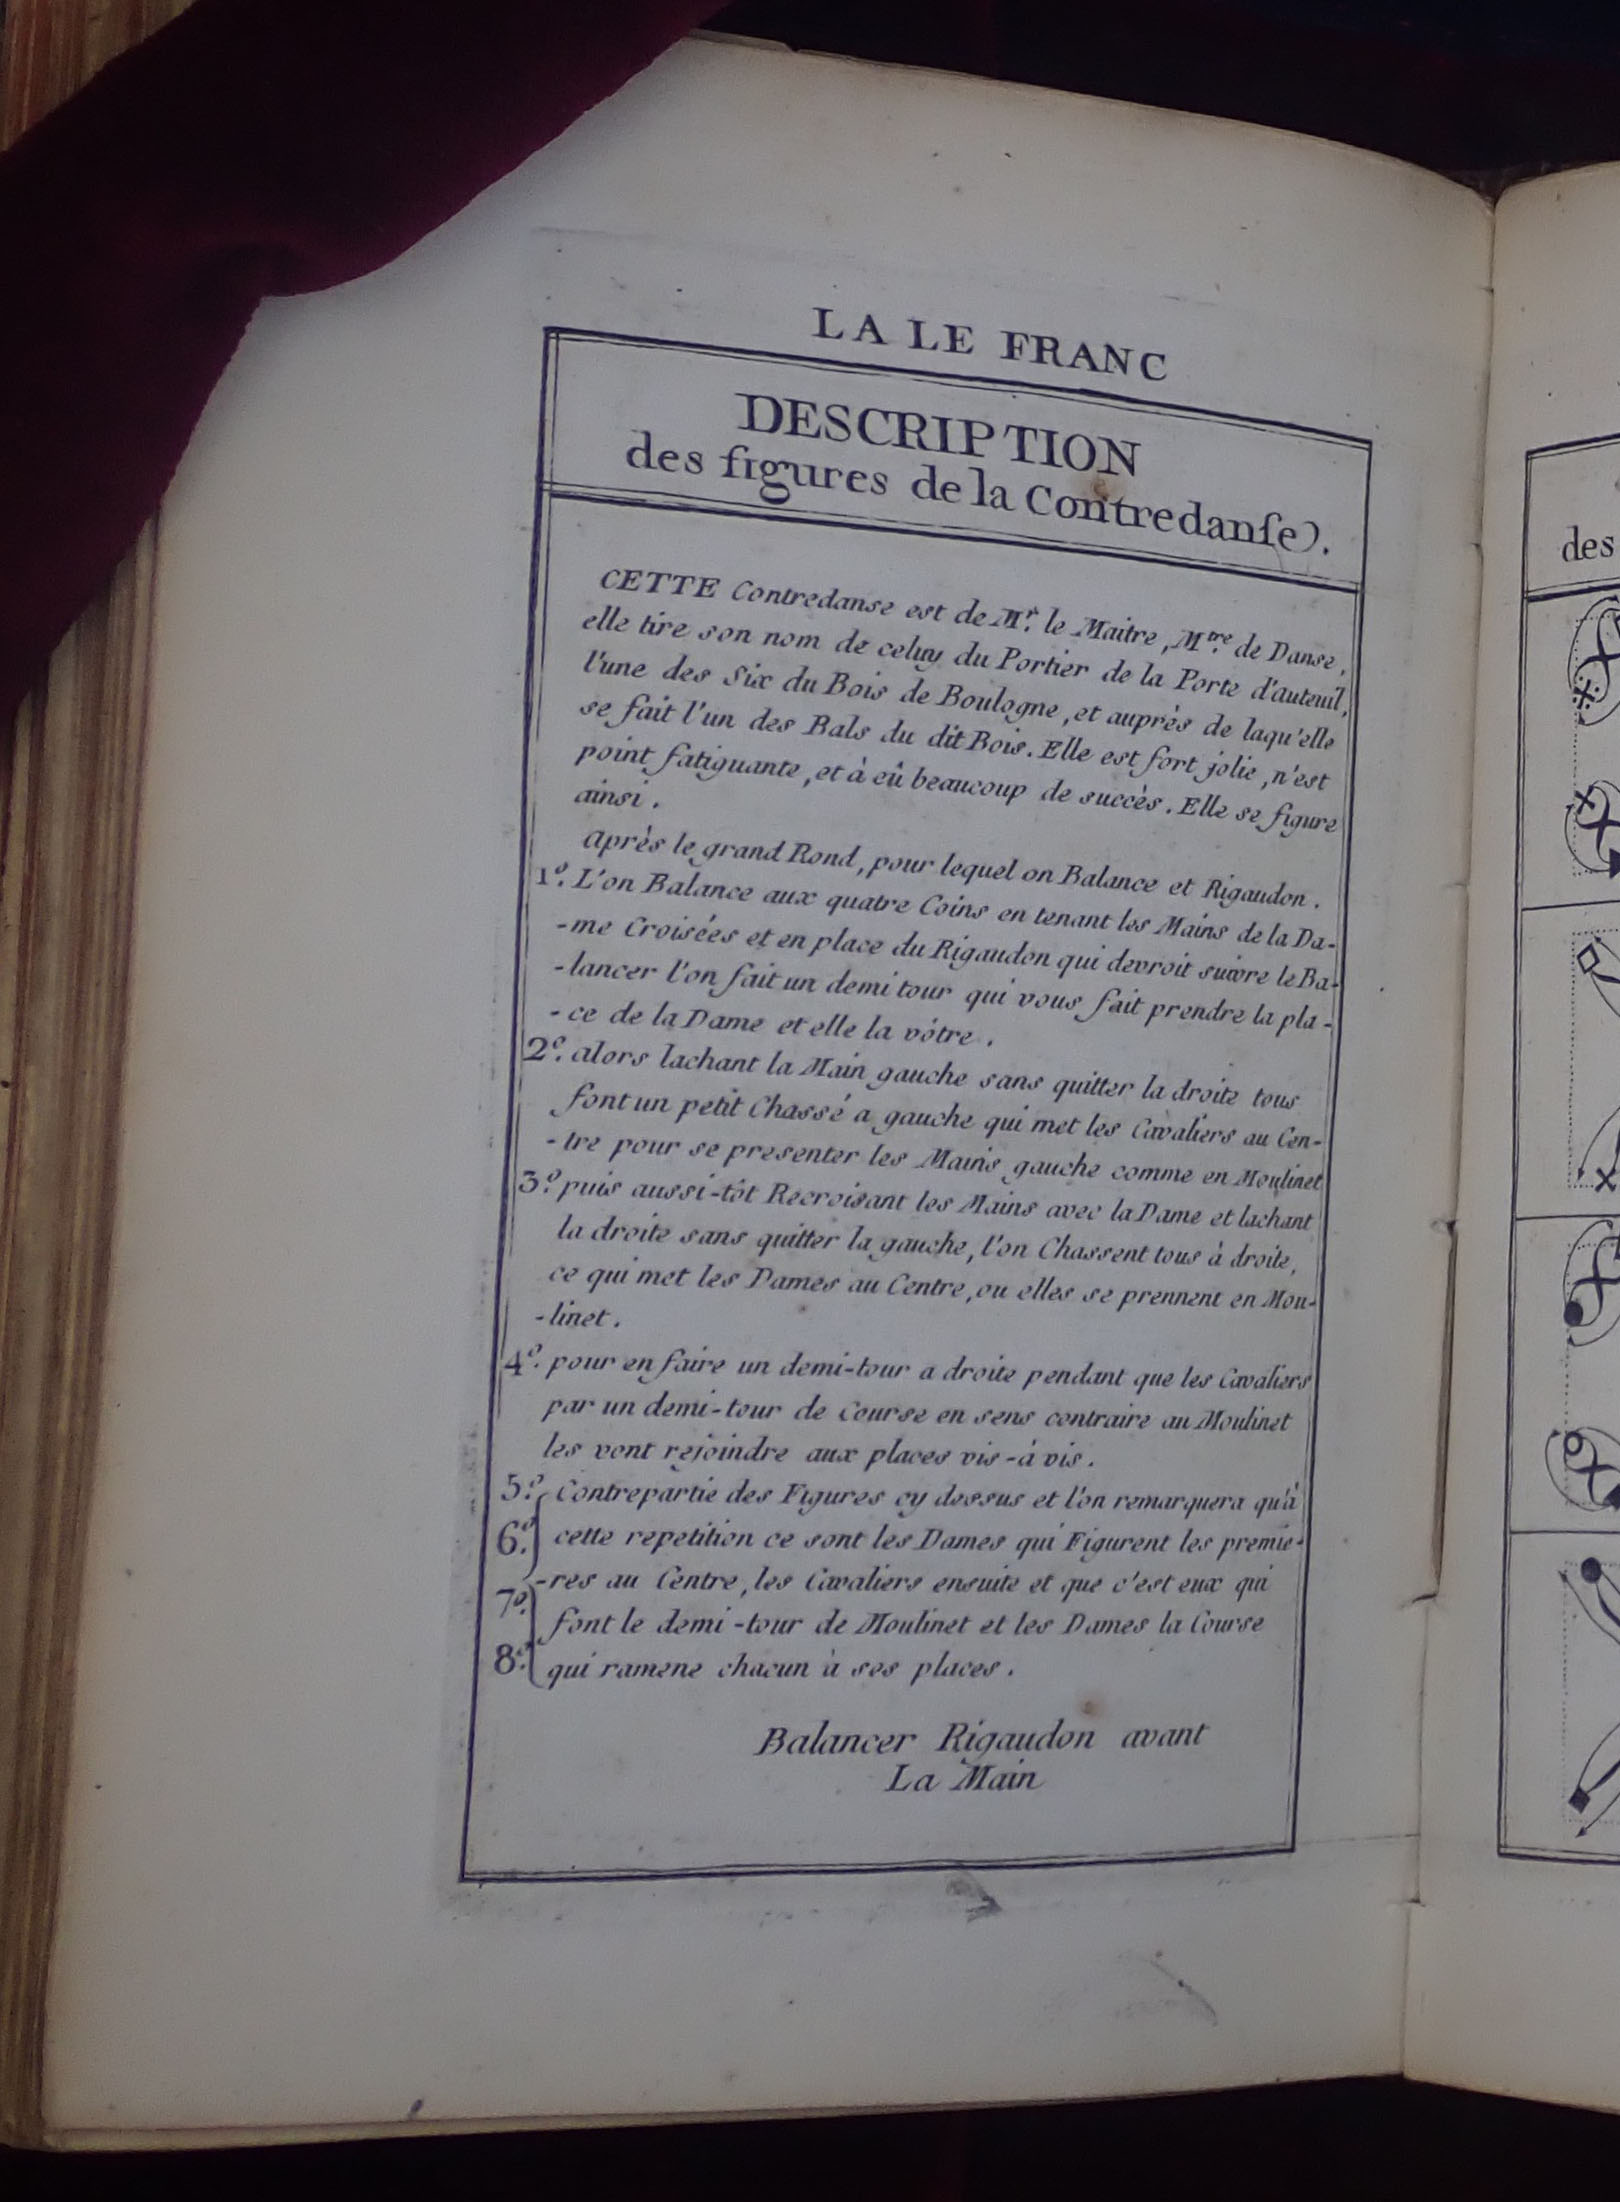 LA LE FRANC
DESCRIPTION
des figures de la Contredanſe.
CETTE Contredanse est de Mr. le Maitre, Mtre. de Danse,
elle tire son nom de celuy du Portier de la Porte d'auteuil,
l'une des Six du Bois de Boulogne, et auprès de laqu'elle
se fait l'un des Bals du dit Bois. Elle est fort jolie, n'est
point fatiguante, et à eû beaucoup de succès. Elle se figure
ainsi.
Après le grand Rond, pour lequel on Balance et Rigaudon.
1º. L'on Balance aux quatre Coins en tenant les Mains de la Da-
-me Croisées et en place du Rigaudon qui devroit suivre le Ba-
-lancer l'on fait un demi tour qui vous fait prendre la pla-
-ce de la Dame et elle la vôtre.
2º. alors lachant la Main gauche sans quitter la droite tous
font un petit Chassé a gauche qui met les Cavaliers au Cen-
-tre pour se presenter les Mains gauche comme en Moulinet
3º. puis aussi-tôt Recroisant les Mains avec la Dame et lachant
la droite sans quitter la gauche, l'on Chassent tous à droite,
ce qui met les Dames au Centre, ou elles se prennent en Mou-
-linet.
4º. pour en faire un demi-tour a droite pendant que les Cavaliers
par un demi-tour de Course en sens contraire au Moulinet
les vont rejoindre aux places vis-à vis.
5º. Contrepartie des Figures cy dessus et l'on remarquera qu'à
6º. cette repetition ce sont les Dames qui Figurent les premie-
-res au Centre, les Cavaliers ensuite et que c'est eux qui
7º. font le demi-tour de Moulinet et les Dames la Course
8º. qui ramene chacun à ses places.
Balancer Rigaudon avant
La Main
des